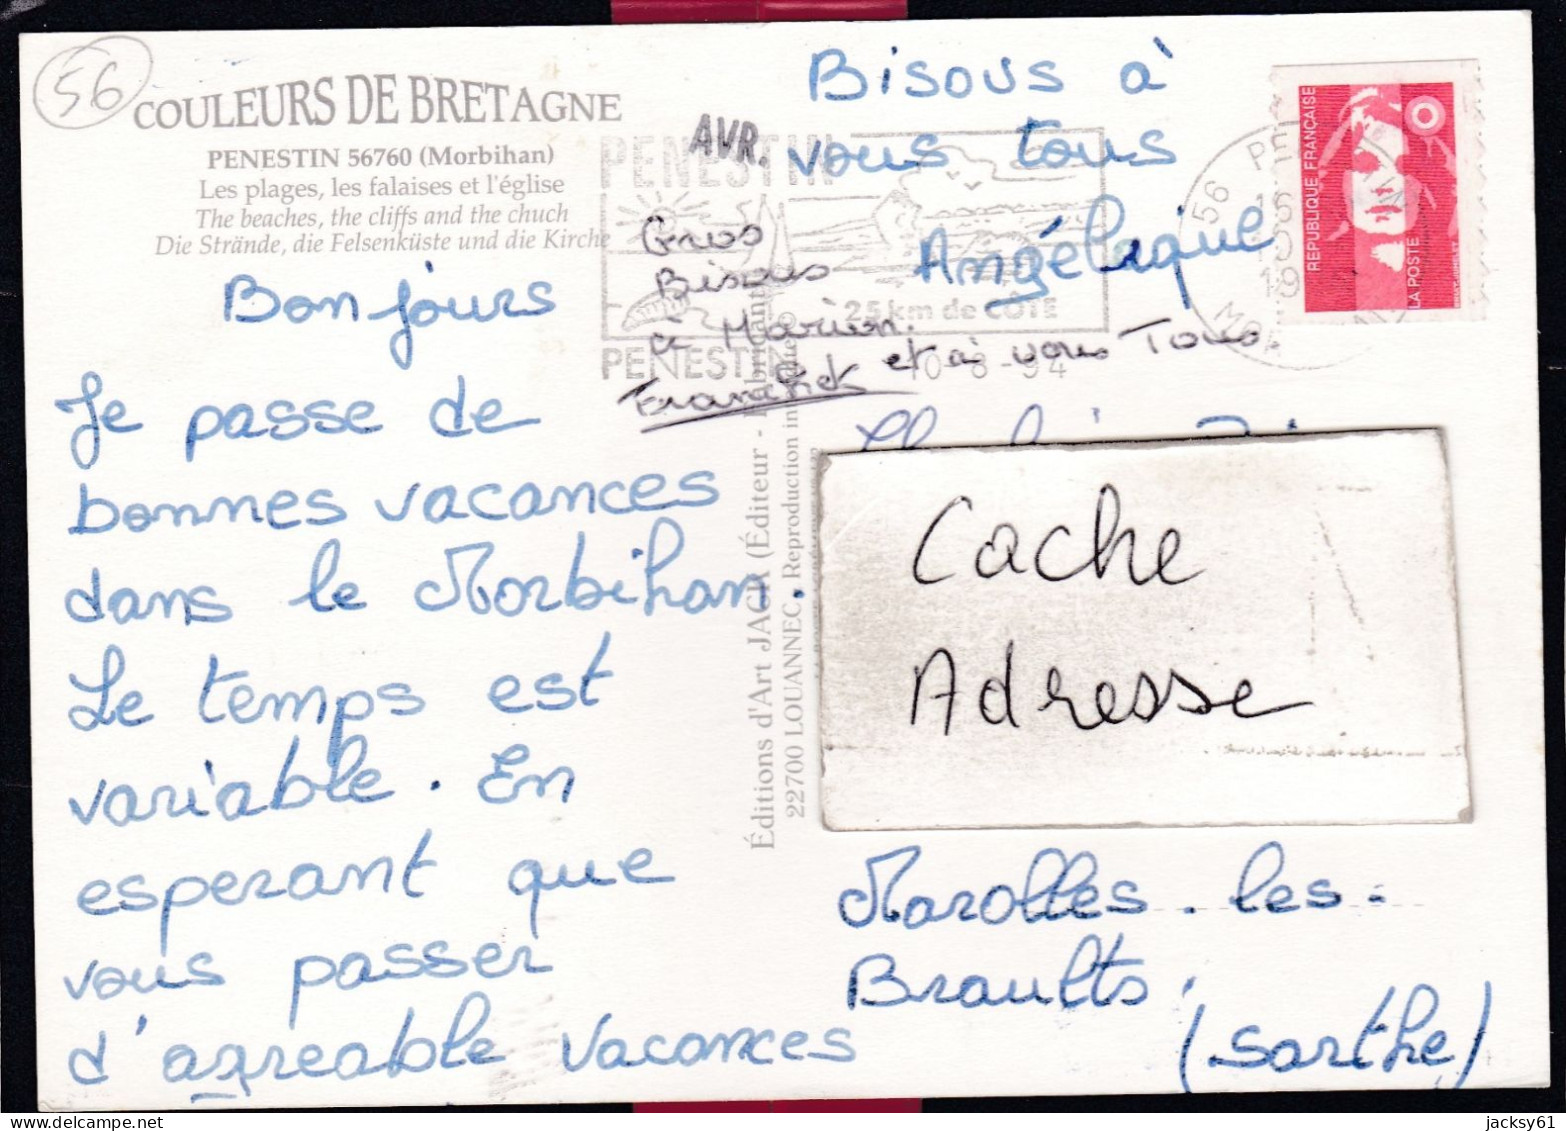 56
COULEURS DE BRETAGNE
PENESTIN 56760 (Morbihan)
Les plages, les falaises et l'église
The beaches, the cliffs and the chuch
Die Strände, die Felsenküste und die Kirche
Bonjours
Je passe de
bonnes vacances
dans le Morbihan.
Le temps est
variable. En
esperant que
vous passer
d'agreable vacances
Bisous à
vous tous
Angélique
Gros
Bisous
à Marion.
et à vous Tous
AVR.
PENESTIN
25 km de CÔTE
PENESTIN
10-8-94
56 PE
16
10
19
MO
REPUBLIQUE FRANÇAISE
LA POSTE
Éditions d'Art JACK (Éditeur - Fabricant)
22700 LOUANNEC. Reproduction in
Cache
Adresse
Marolles-les-
Braults.
(Sarthe)
jacksy61